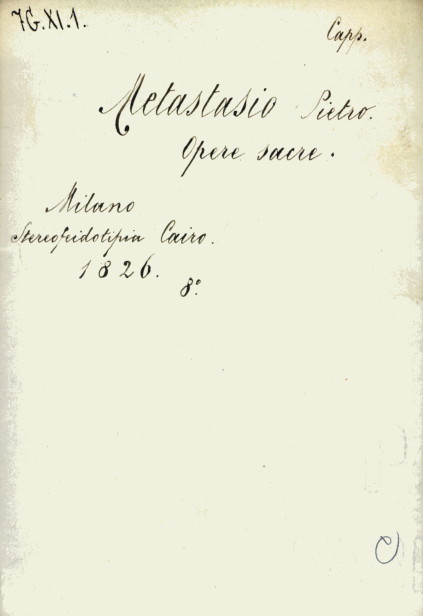 7G.XI.1.
Capp.
Metastasio Pietro.
Opere sacre.
Milano
Stereofeidotipia Cairo.
1826.
8°
C